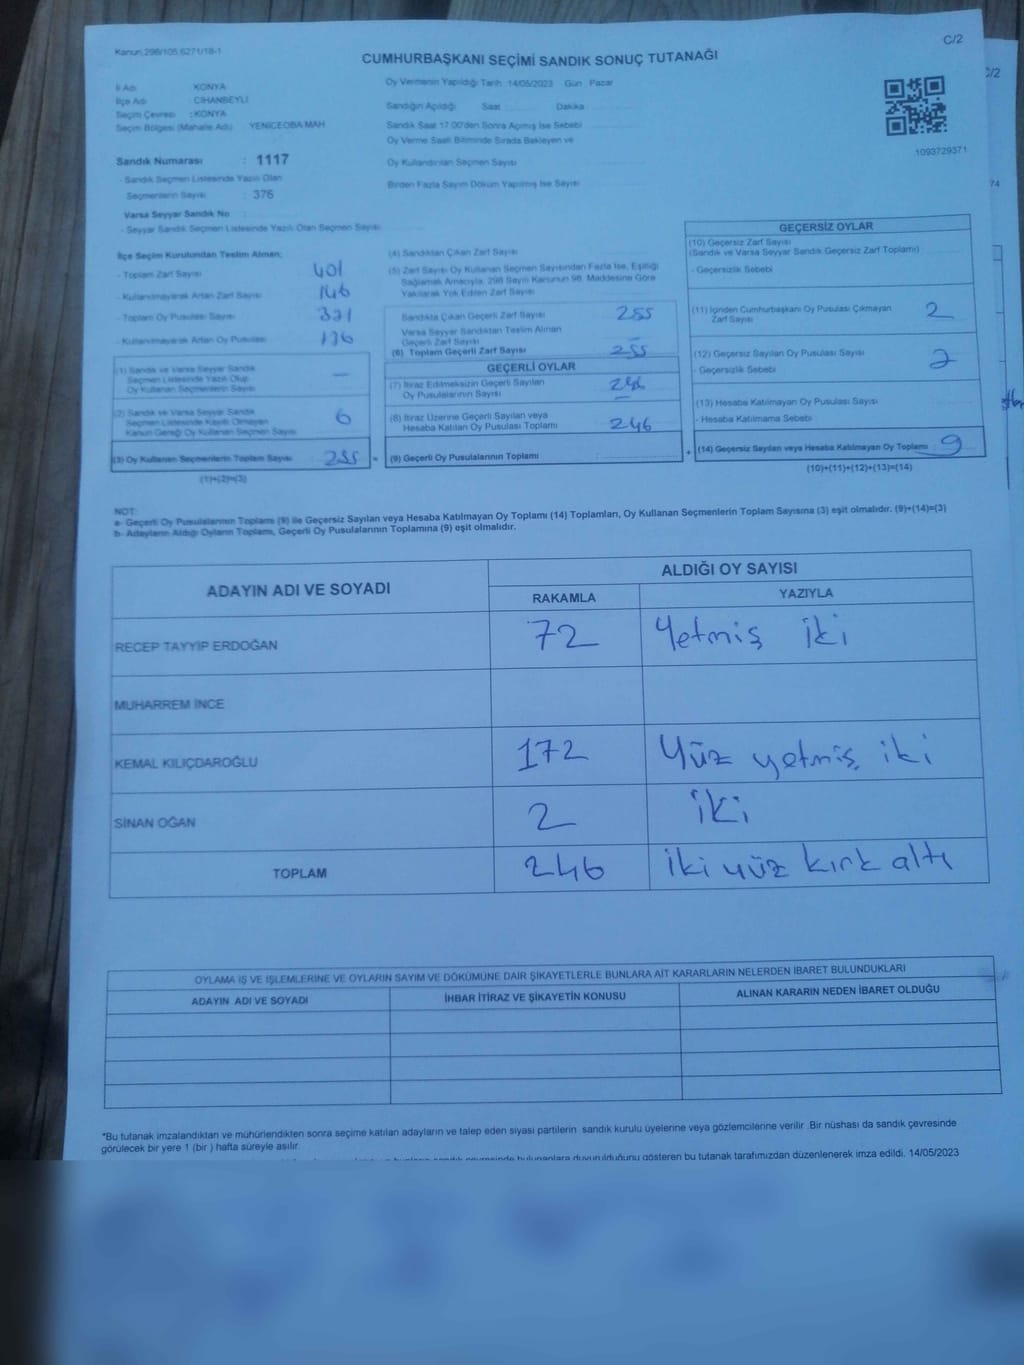 Kanun 298/105.6271/18-1
C/2
CUMHURBAŞKANI SEÇİMİ SANDIK SONUÇ TUTANAĞI
İl Adı KONYA
İlçe Adı : CİHANBEYLİ
Seçim Çevresi : KONYA
Seçim Bölgesi (Mahalle Adı) YENİCEOBA MAH
Sandık Numarası : 1117
- Sandık Seçmen Listesinde Yazılı Olan
Seçmenlerin Sayısı : 376
Varsa Seyyar Sandık No :
- Seyyar Sandık Seçmen Listesinde Yazılı Olan Seçmen Sayısı
Oy Vermenin Yapıldığı Tarih 14/05/2023 Gün Pazar
Sandığın Açıldığı Saat Dakika
Sandık Saat 17.00'den Sonra Açılmış İse Sebebi
Oy Verme Saati Bitiminde Sırada Bekleyen ve
Oy Kullandırılan Seçmen Sayısı
Birden Fazla Sayım Döküm Yapılmış İse Sayısı
1093729371
C/2
74
İlçe Seçim Kurulundan Teslim Alınan;
- Toplam Zarf Sayısı 401
- Kullanılmayarak Artan Zarf Sayısı 146
- Toplam Oy Pusulası Sayısı
- Kullanılmayarak Artan Oy Pusulası 136
(1) Sandık ve Varsa Seyyar Sandık
Seçmen Listesinde Yazılı Olup
Oy Kullanan Seçmenlerin Sayısı —
(2) Sandık ve Varsa Seyyar Sandık
Seçmen Listesinde Kayıtlı Olmayan
Kanun Gereği Oy Kullanan Seçmen Sayısı 6
(3) Oy Kullanan Seçmenlerin Toplam Sayısı 255 =
(1)+(2)=(3)
(4) Sandıktan Çıkan Zarf Sayısı
(5) Zarf Sayısı Oy Kullanan Seçmen Sayısından Fazla İse, Eşitliği
Sağlamak Amacıyla, 298 Sayılı Kanunun 98. Maddesine Göre
Yakılarak Yok Edilen Zarf Sayısı
Sandıkta Çıkan Geçerli Zarf Sayısı 255
Varsa Seyyar Sandıktan Teslim Alınan
Geçerli Zarf Sayısı —
(6) Toplam Geçerli Zarf Sayısı 255
GEÇERLİ OYLAR
(7) İtiraz Edilmeksizin Geçerli Sayılan
Oy Pusulalarının Sayısı 246
(8) İtiraz Üzerine Geçerli Sayılan veya —
Hesaba Katılan Oy Pusulası Toplamı 246
(9) Geçerli Oy Pusulalarının Toplamı +
GEÇERSİZ OYLAR
(10) Geçersiz Zarf Sayısı
(Sandık ve Varsa Seyyar Sandık Geçersiz Zarf Toplamı)
- Geçersizlik Sebebi
(11) İçinden Cumhurbaşkanı Oy Pusulası Çıkmayan
Zarf Sayısı 2
(12) Geçersiz Sayılan Oy Pusulası Sayısı
- Geçersizlik Sebebi
(13) Hesaba Katılmayan Oy Pusulası Sayısı
- Hesaba Katılmama Sebebi
(14) Geçersiz Sayılan veya Hesaba Katılmayan Oy Toplamı 9
(10)+(11)+(12)+(13)=(14)
NOT:
a- Geçerli Oy Pusulalarının Toplamı (9) ile Geçersiz Sayılan veya Hesaba Katılmayan Oy Toplamı (14) Toplamları, Oy Kullanan Seçmenlerin Toplam Sayısına (3) eşit olmalıdır. (9)+(14)=(3)
b- Adayların Aldığı Oyların Toplamı, Geçerli Oy Pusulalarının Toplamına (9) eşit olmalıdır.
ADAYIN ADI VE SOYADI ALDIĞI OY SAYISI
RAKAMLA YAZIYLA
RECEP TAYYİP ERDOĞAN 72 Yetmiş iki
MUHARREM İNCE
KEMAL KILIÇDAROĞLU 172 Yüz yetmiş iki
SİNAN OĞAN 2 iki
TOPLAM 246 iki yüz kırk altı
OYLAMA İŞ VE İŞLEMLERİNE VE OYLARIN SAYIM VE DÖKÜMÜNE DAİR ŞİKAYETLERLE BUNLARA AİT KARARLARIN NELERDEN İBARET BULUNDUKLARI
ADAYIN ADI VE SOYADI İHBAR İTİRAZ VE ŞİKAYETİN KONUSU ALINAN KARARIN NEDEN İBARET OLDUĞU
*Bu tutanak imzalandıktan ve mühürlendikten sonra seçime katılan adayların ve talep eden siyasi partilerin sandık kurulu üyelerine veya gözlemcilerine verilir. Bir nüshası da sandık çevresinde
görülecek bir yere 1 (bir) hafta süreyle asılır.
bulunanlara duyurulduğunu gösteren bu tutanak tarafımızdan düzenlenerek imza edildi. 14/05/2023